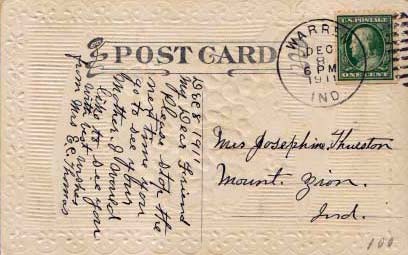 POST CARD
WARREN
DEC
8
6 PM
1911
IND
U.S. POSTAGE
ONE CENT
Dec 8 1911
My Dear Friend
Please stop the
next time you
go to see your
Mother I would
like to see you
with best wishes
from Mrs E C Thomas
Mrs Josephine Thurston
Mount. Zion.
Ind.
100